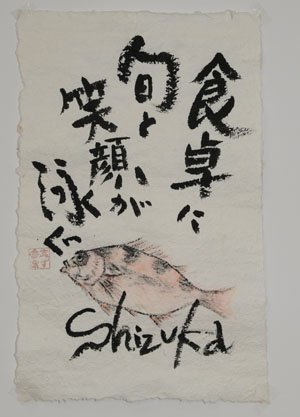 食卓に
旬と
笑顔が
泳ぐ
Shizuka